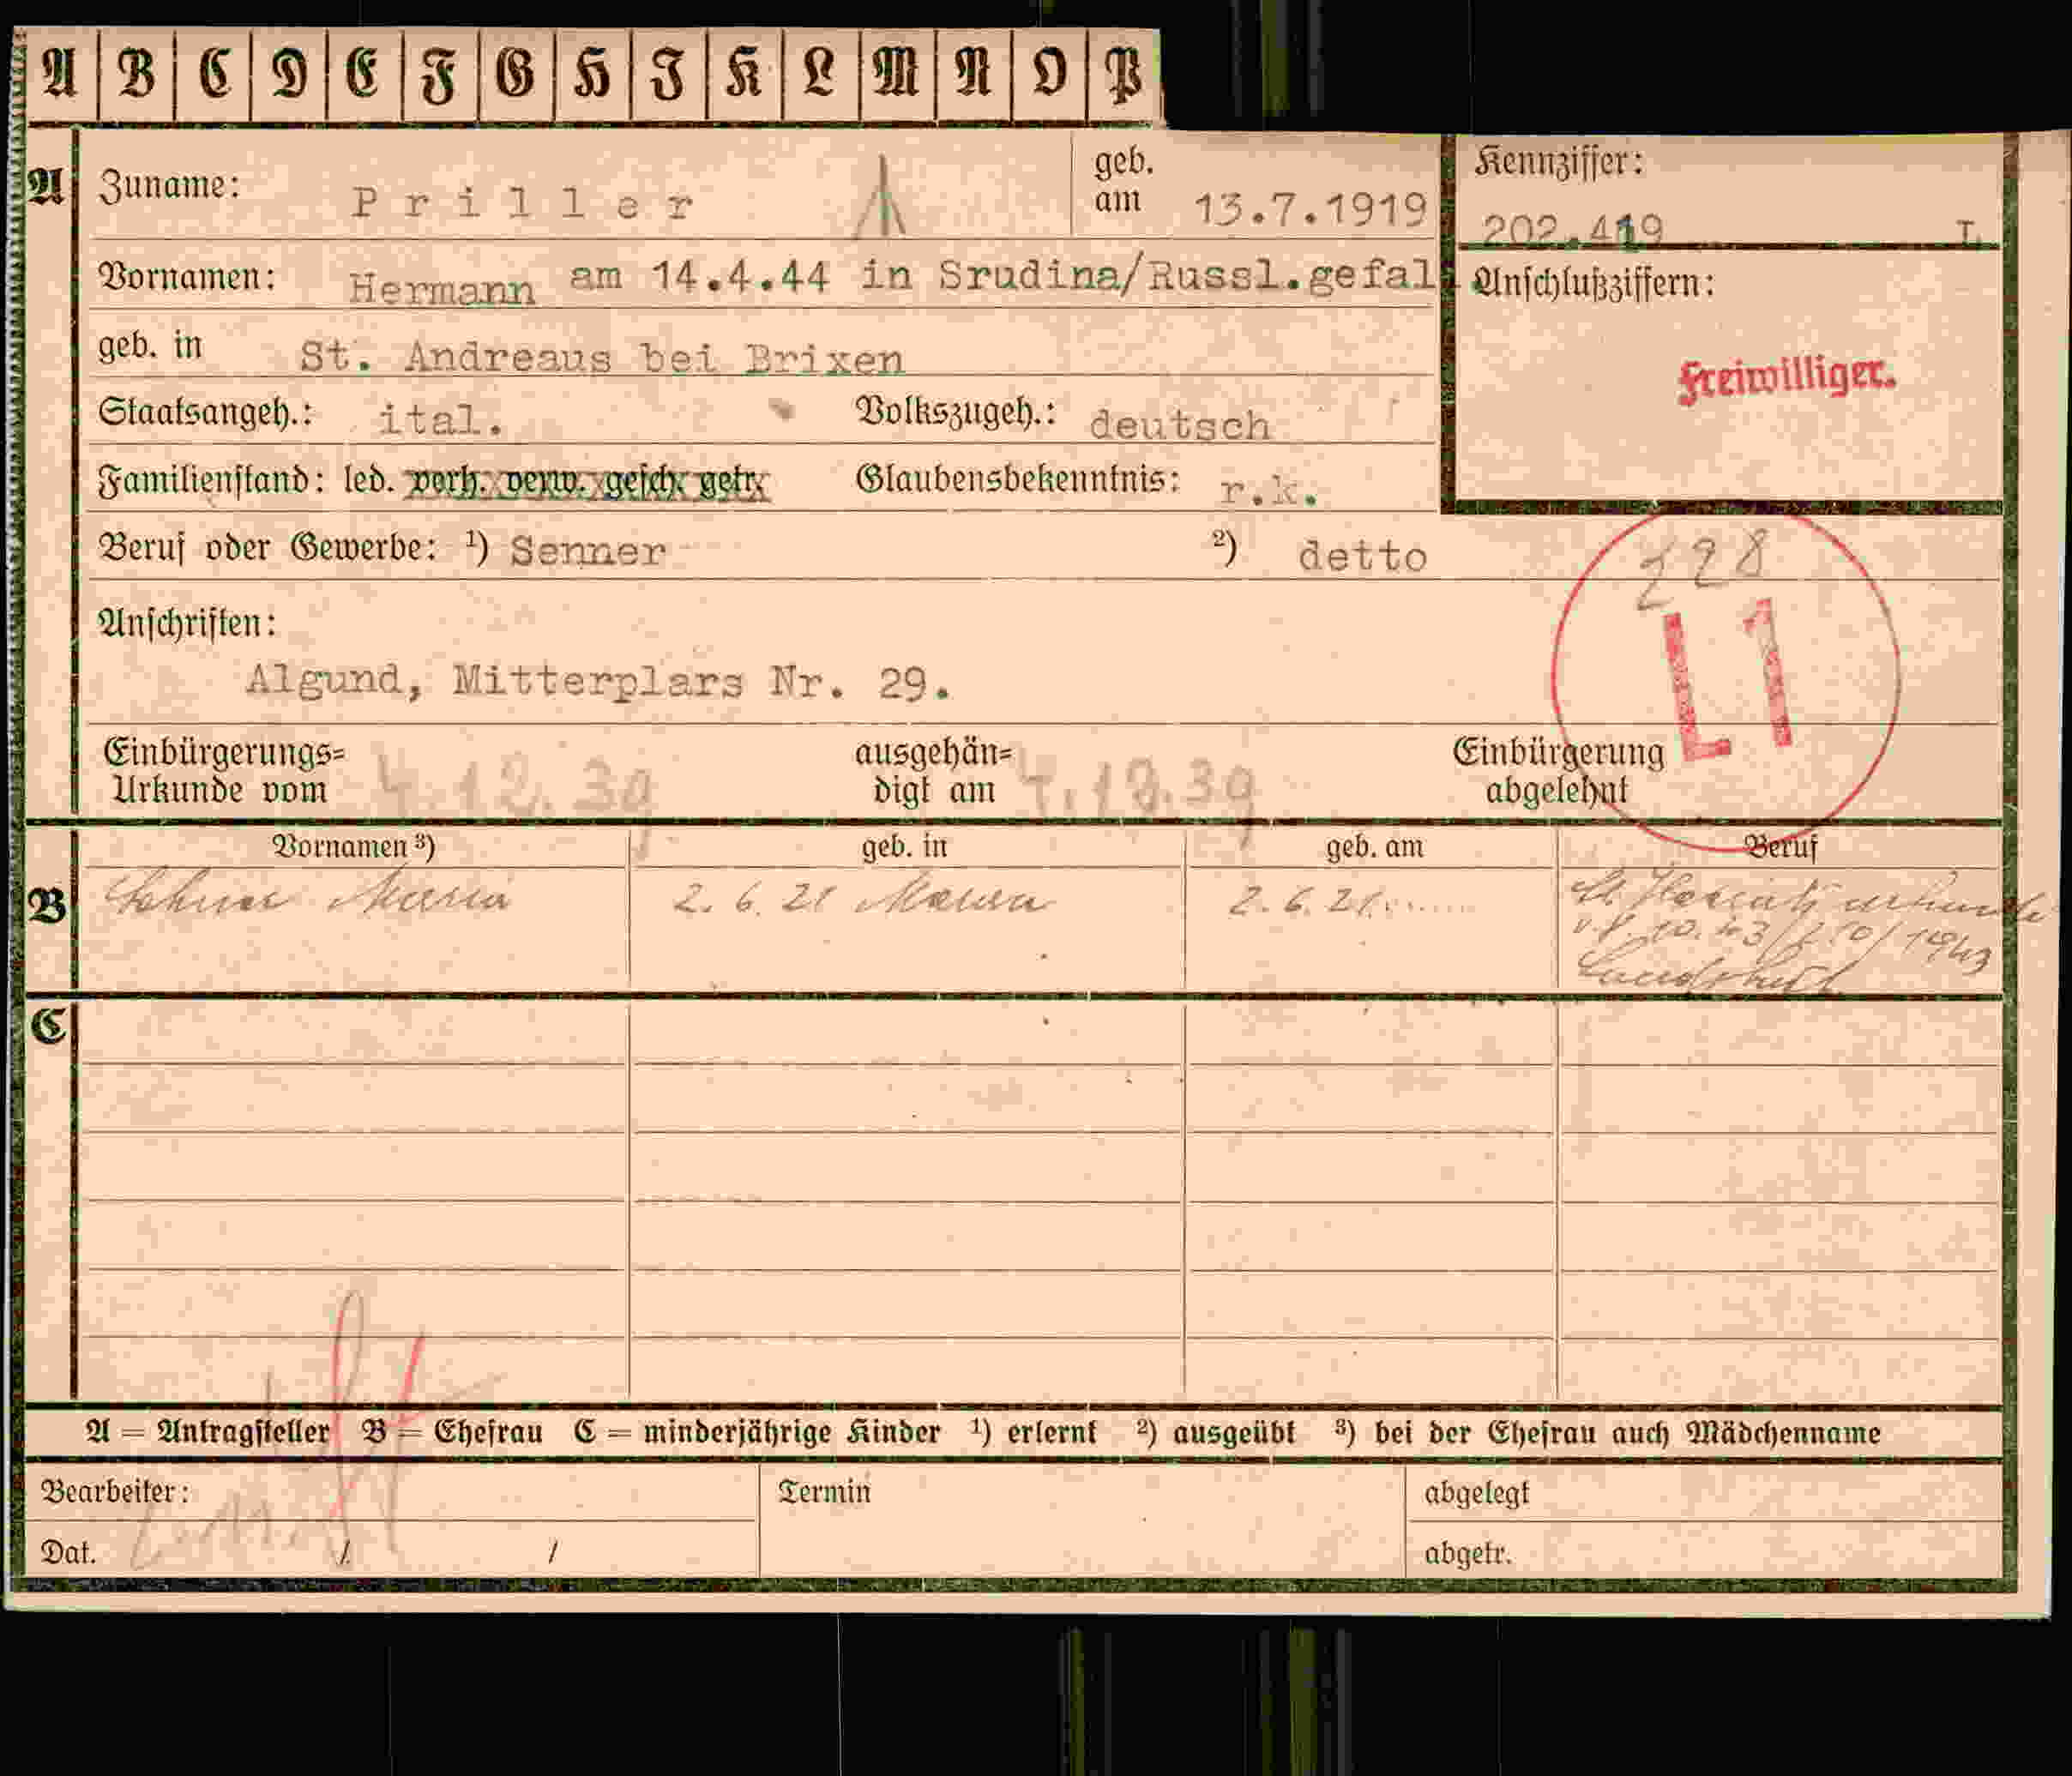 A B C D E F G H J K L M N O P
A Zuname: Priller geb. am 13.7.1919
Kennziffer: 202.419 I.
Vornamen: Hermann am 14.4.44 in Srudina/Russl.gefal
Anschlußziffern:
Freiwilliger.
geb. in St. Andreaus bei Brixen
Staatsangeh.: ital. Volkszugeh.: deutsch
Familienstand: led. verh. verw. gesch. getr. Glaubensbekenntnis: r.k.
Beruf oder Gewerbe: ¹) Senner ²) detto
L1
Anschriften:
Algund, Mitterplars Nr. 29.
Einbürgerungs=
Urkunde vom 4.12.39
ausgehän=
digt am 4.12.39
Einbürgerung
abgelehnt
Vornamen ³) geb. in geb. am Beruf
B Maria 2.6.21 2.6.21
C
A = Antragsteller B = Ehefrau C = minderjährige Kinder ¹) erlernt ²) ausgeübt ³) bei der Ehefrau auch Mädchenname
Bearbeiter: Termin abgelegt
Dat. / / abgetr.